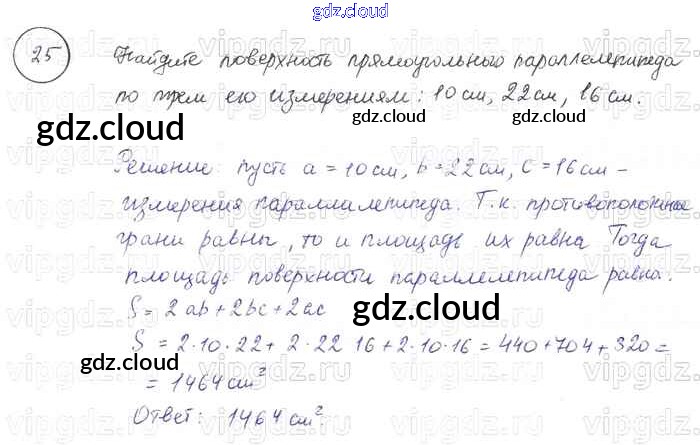 gdz.cloud
25
Найдите поверхность прямоугольного параллелепипеда
по трем его измерениям: 10 см, 22 см, 16 см.
gdz.cloud
gdz.cloud
gdz.cloud
Решение: пусть a = 10 см, b = 22 см, c = 16 см –
измерения параллилепипеда. Т.к. противоположные
грани равны, то и площадь их равна Тогда
площадь поверхности параллелепипеда равна.
S = 2ab + 2bc + 2ac
gdz.cloud
S = 2·10·22 + 2·22 16 + 2·10·16 = 440 + 704 + 320 =
gdz.cloud
= 1464 см²
gdz.cloud
Ответ: 1464 см².